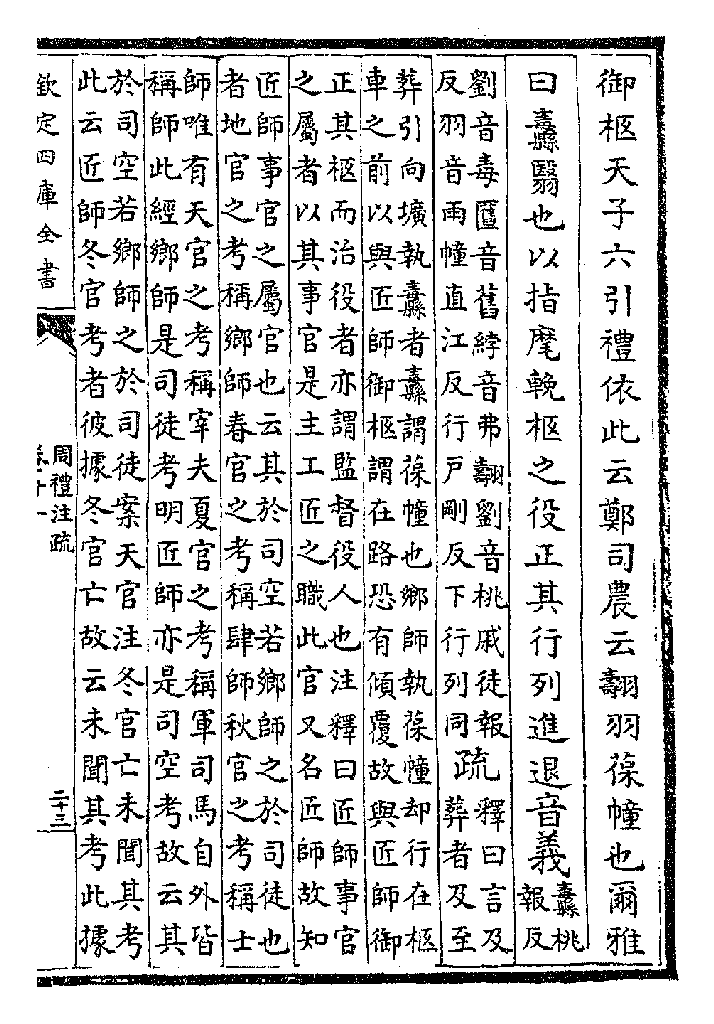 御柩天子六引禮依此云鄭司農云翿羽葆幢也爾雅
曰纛翳也以指麾輓柩之役正其行列進退音義纛桃
報反
劉音毒匶音舊綍音弗翿劉音桃戚徒報
反羽音雨幢直江反行戶剛反下行列同
疏釋曰言及
葬者及至
葬引向壙執纛者纛謂葆幢也鄉師執葆幢却行在柩
車之前以與匠師御柩謂在路恐有傾覆故與匠師御
正其柩而治役者亦謂監督役人也注釋曰匠師事官
之屬者以其事官是主工匠之職此官又名匠師故知
匠師事官之屬官也云其於司空若鄉師之於司徒也
者地官之考稱鄉師春官之考稱肆師秋官之考稱士
師唯有天官之考稱宰夫夏官之考稱軍司馬自外皆
稱師此經鄉師是司徒考明匠師亦是司空考故云其
於司空若鄉師之於司徒案天官注冬官亡未聞其考
此云匠師冬官考者彼據冬官亡故云未聞其考此據
欽定四庫全書
周禮注疏
卷十一
二十三